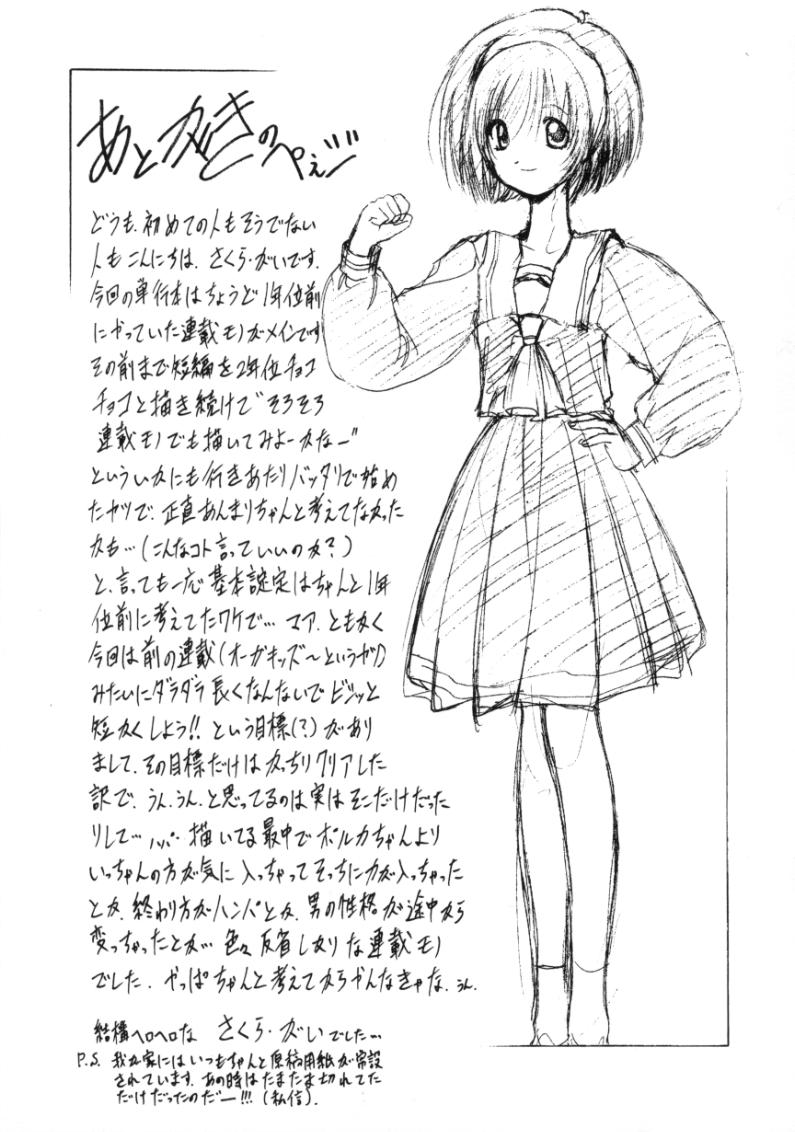 あとがきのぺぇじ
どうも、初めての人もそうでない
人もこんにちは、さくら・がいです。
今回の単行本はちょうど1年位前
にやっていた連載モノがメインです
その前まで短編を2年位チョコ
チョコと描き続けて“そろそろ
連載モノでも描いてみよーかなー”
といういかにも行きあたりバッタリで始め
たヤツで、正直あんまりちゃんと考えてなかった
かも…(こんなコト言っていいのか?)
と、言っても一応基本設定はちゃんと1年
位前に考えてたワケで… マア、ともかく
今回は前の連載(オーガキッズ〜というヤツ)
みたいにダラダラ長くなんないでビシッと
短かくしよう!!という目標(?)があり
まして、その目標だけはがっちりクリアした
訳で、うん、うん、と思ってるのは実はそこだけだった
りして… 描いてる最中でポルカちゃんより
いっちゃんの方が気に入っちゃってそっちに力が入っちゃった
とか、終わり方がハンパとか、男の性格が途中から
変っちゃったとか… 色々反省しきりな連載モノ
でした。やっぱちゃんと考えてからかんなきゃな、うん
結構ヘロヘロな さくら・がいでした…
P.S. 我が家にはいつもちゃんと原稿用紙が常設
されています。あの時はたまたま切れてた
だけだったのだー!!!(私信).